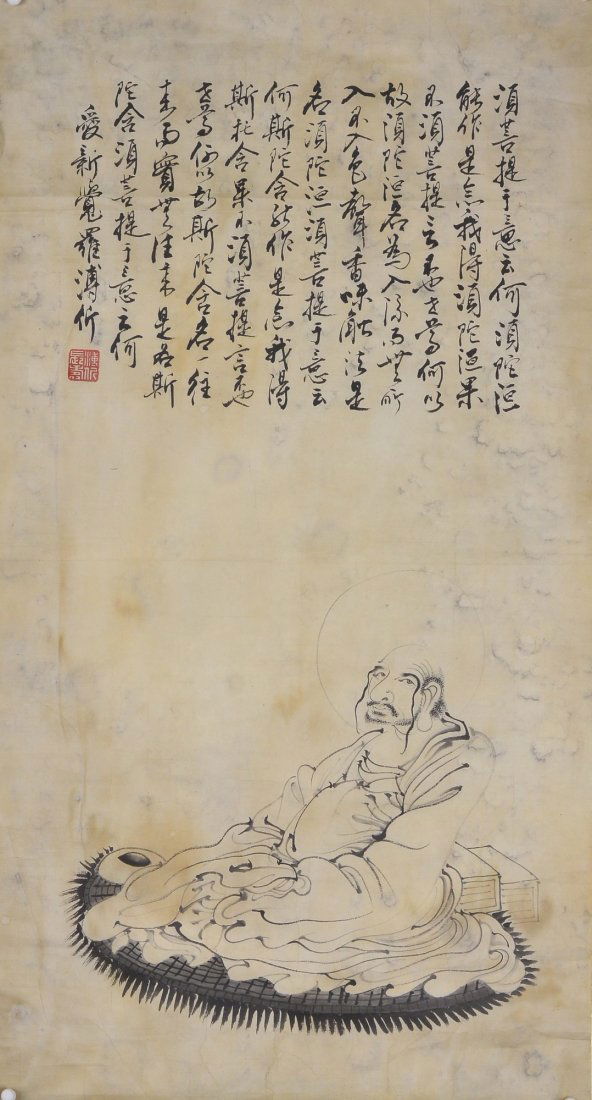 須菩提于意云何須陀洹
能作是念我得須陀洹果
不須菩提言不也世尊何以
故須陀洹名為入流而無所
入不入色聲香味觸法是
名須陀洹須菩提于意云
何斯陀含能作是念我得
斯陀含果不須菩提言不也
世尊何以故斯陀含名一往
來而實無往來是名斯
陀含須菩提于意云何
愛新覺羅溥佐